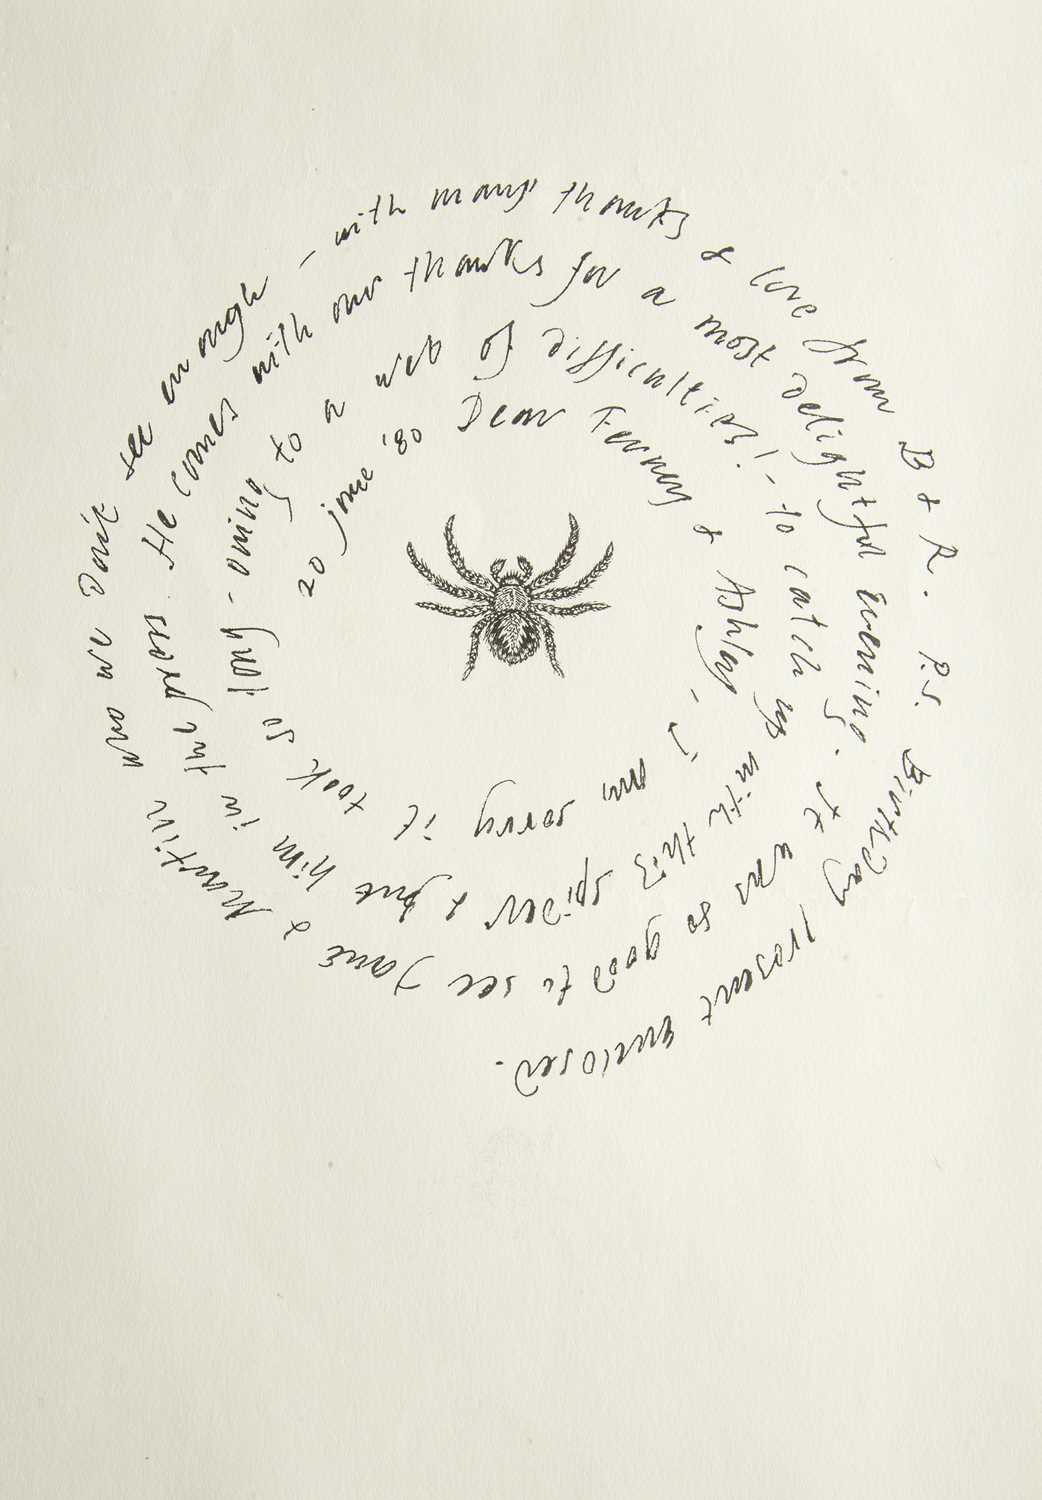 20 June '80 Dear Ferney & Ashley, I am sorry it took so long - owing to a web of difficulties! - to catch up with this spider & put him in the press. He comes with our thanks for a most delightful evening. It was so good to see Jane & Martin who we don't see enough - with many thanks & love from B & R. P.S. Birthday present enclosed.